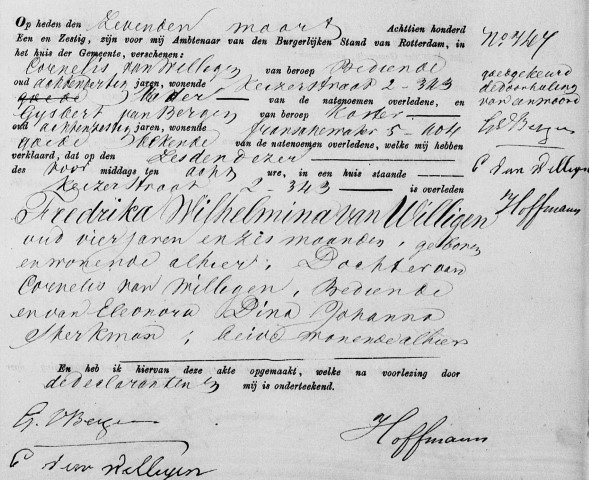 Op heden den zevenden maart Achttien honderd
Een en Zestig, zijn voor mij Ambtenaar van den Burgerlijken Stand van Rotterdam, in
het huis der Gemeente, verschenen:
Cornelis van Willigen van beroep Bediende
oud achtendertig jaren, wonende Keizerstraat 2-343
goede Vader van de natenoemen overledene, en
Gijsbert van Bergen van beroep Koster
oud achtenzestig jaren, wonende Franschewater 5-404
goede bekende van de natenoemen overledene, welke mij hebben
verklaard, dat op den zesden dezer
des voor middags ten acht ure, in een huis staande
Keizerstraat 2-343 is overleden
Fredrika Wilhelmina van Willigen
oud vier jaren en zes maanden, geboren
en wonende alhier; Dochter van
Cornelis van Willigen, Bediende
en van Eleonora Dina Johanna
Sterkman; beide wonende alhier
En heb ik hiervan deze akte opgemaakt, welke na voorlezing door
de declaranten en mij is onderteekend.
G. v Bergen
C van Willigen
Hoffmann
No. 447
goedgekeurd
de doorhaling
van een woord
G v Bergen
C van Willigen
Hoffmann